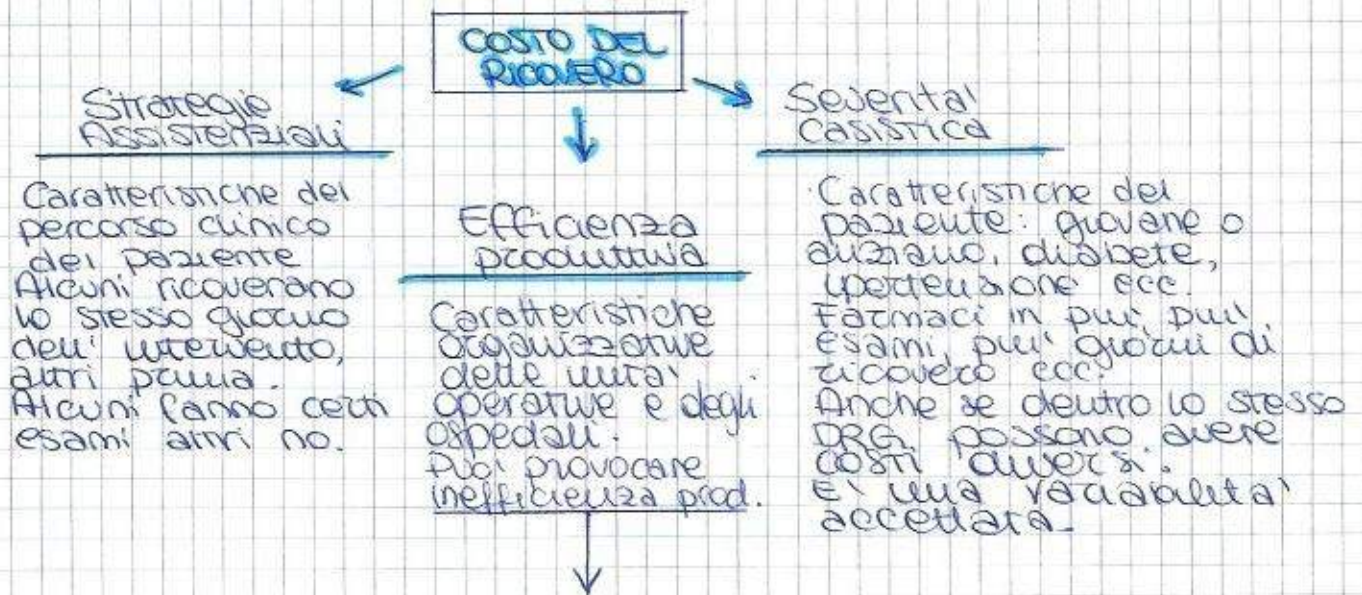 COSTO DEL
RICOVERO
Strategie
Assistenziali
Caratteristiche del
percorso clinico
del paziente
Alcuni ricoverano
lo stesso giorno
dell' intervento,
altri prima.
Alcuni fanno certi
esami altri no.
Efficienza
produttiva
Caratteristiche
organizzative
delle unita'
operative e degli
ospedali.
Puo' provocare
inefficienza prod.
Severita'
casistica
Caratteristiche del
paziente: giovane o
anziano, diabete,
ipertensione ecc.
Farmaci in piu', piu'
esami, piu' giorni di
ricovero ecc.
Anche se dentro lo stesso
DRG, possono avere
costi diversi.
E' una variabilita'
accettata.